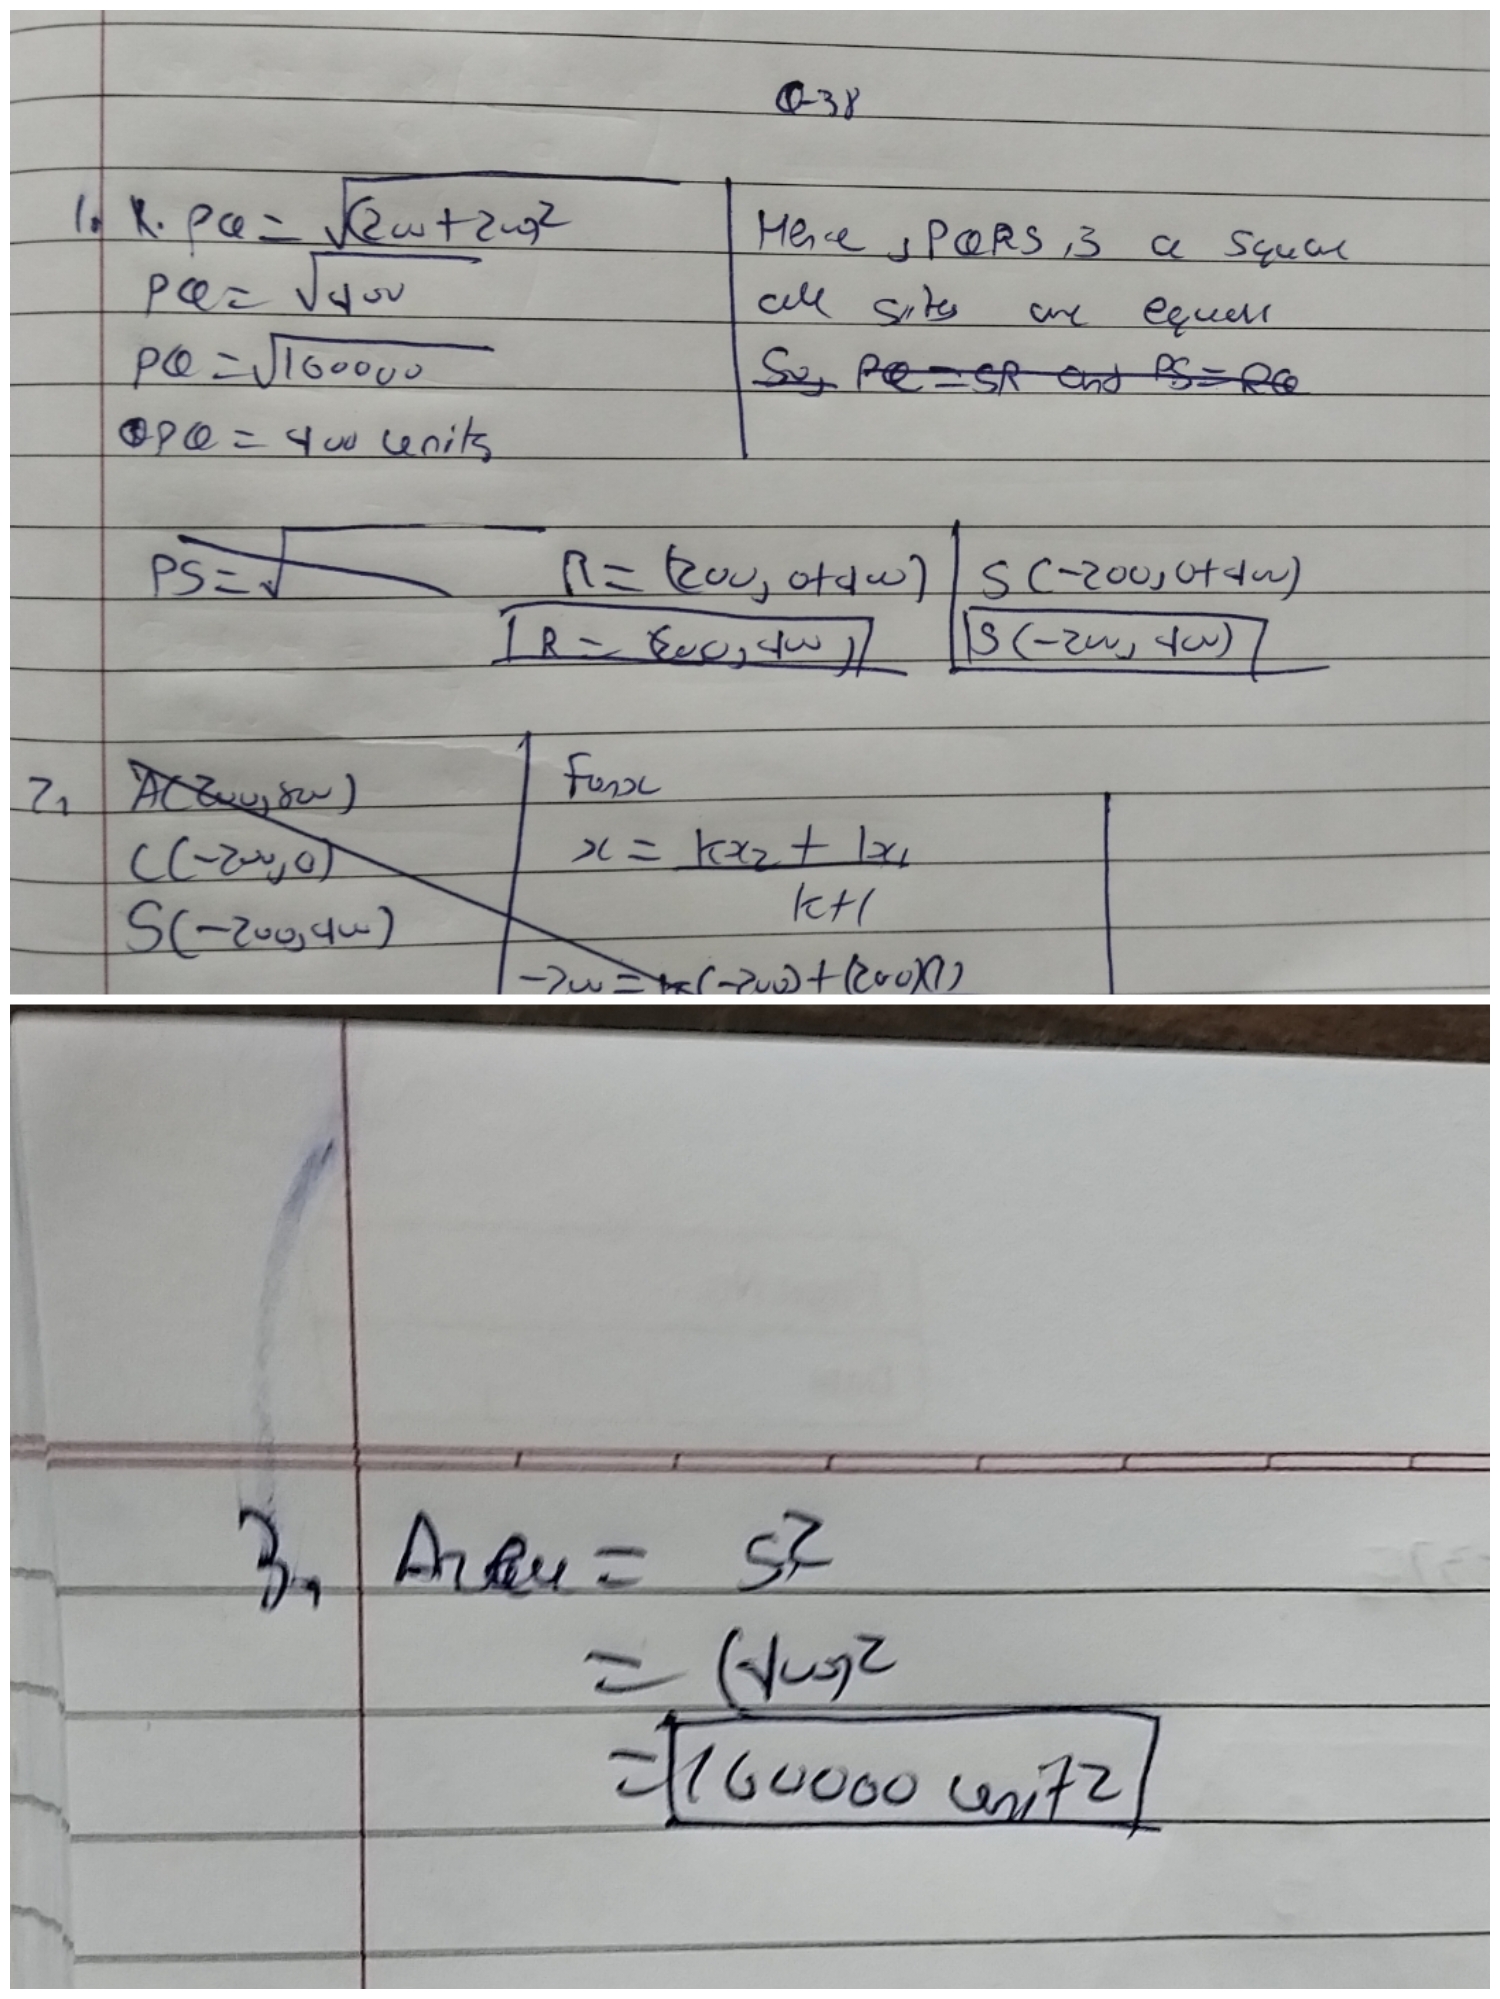 Q-38
1. R. PQ = √(200+200)²
PQ = √400
PQ = √160000
PQ = 400 units
Here, PQRS is a square
all sites are equall
So, PQ = SR and PS = RQ
PS = √
R = (200, 0+400)
R = (200, 400)
S(-200, 0+400)
S(-200, 400)
2, A(200, 800)
C(-200, 0)
S(-200, 400)
For x
x = kx₂ + 1x₁
k+1
-200 = k(-200) + (200)(1)
3, Area = s²
= (400)²
= 160000 unit2